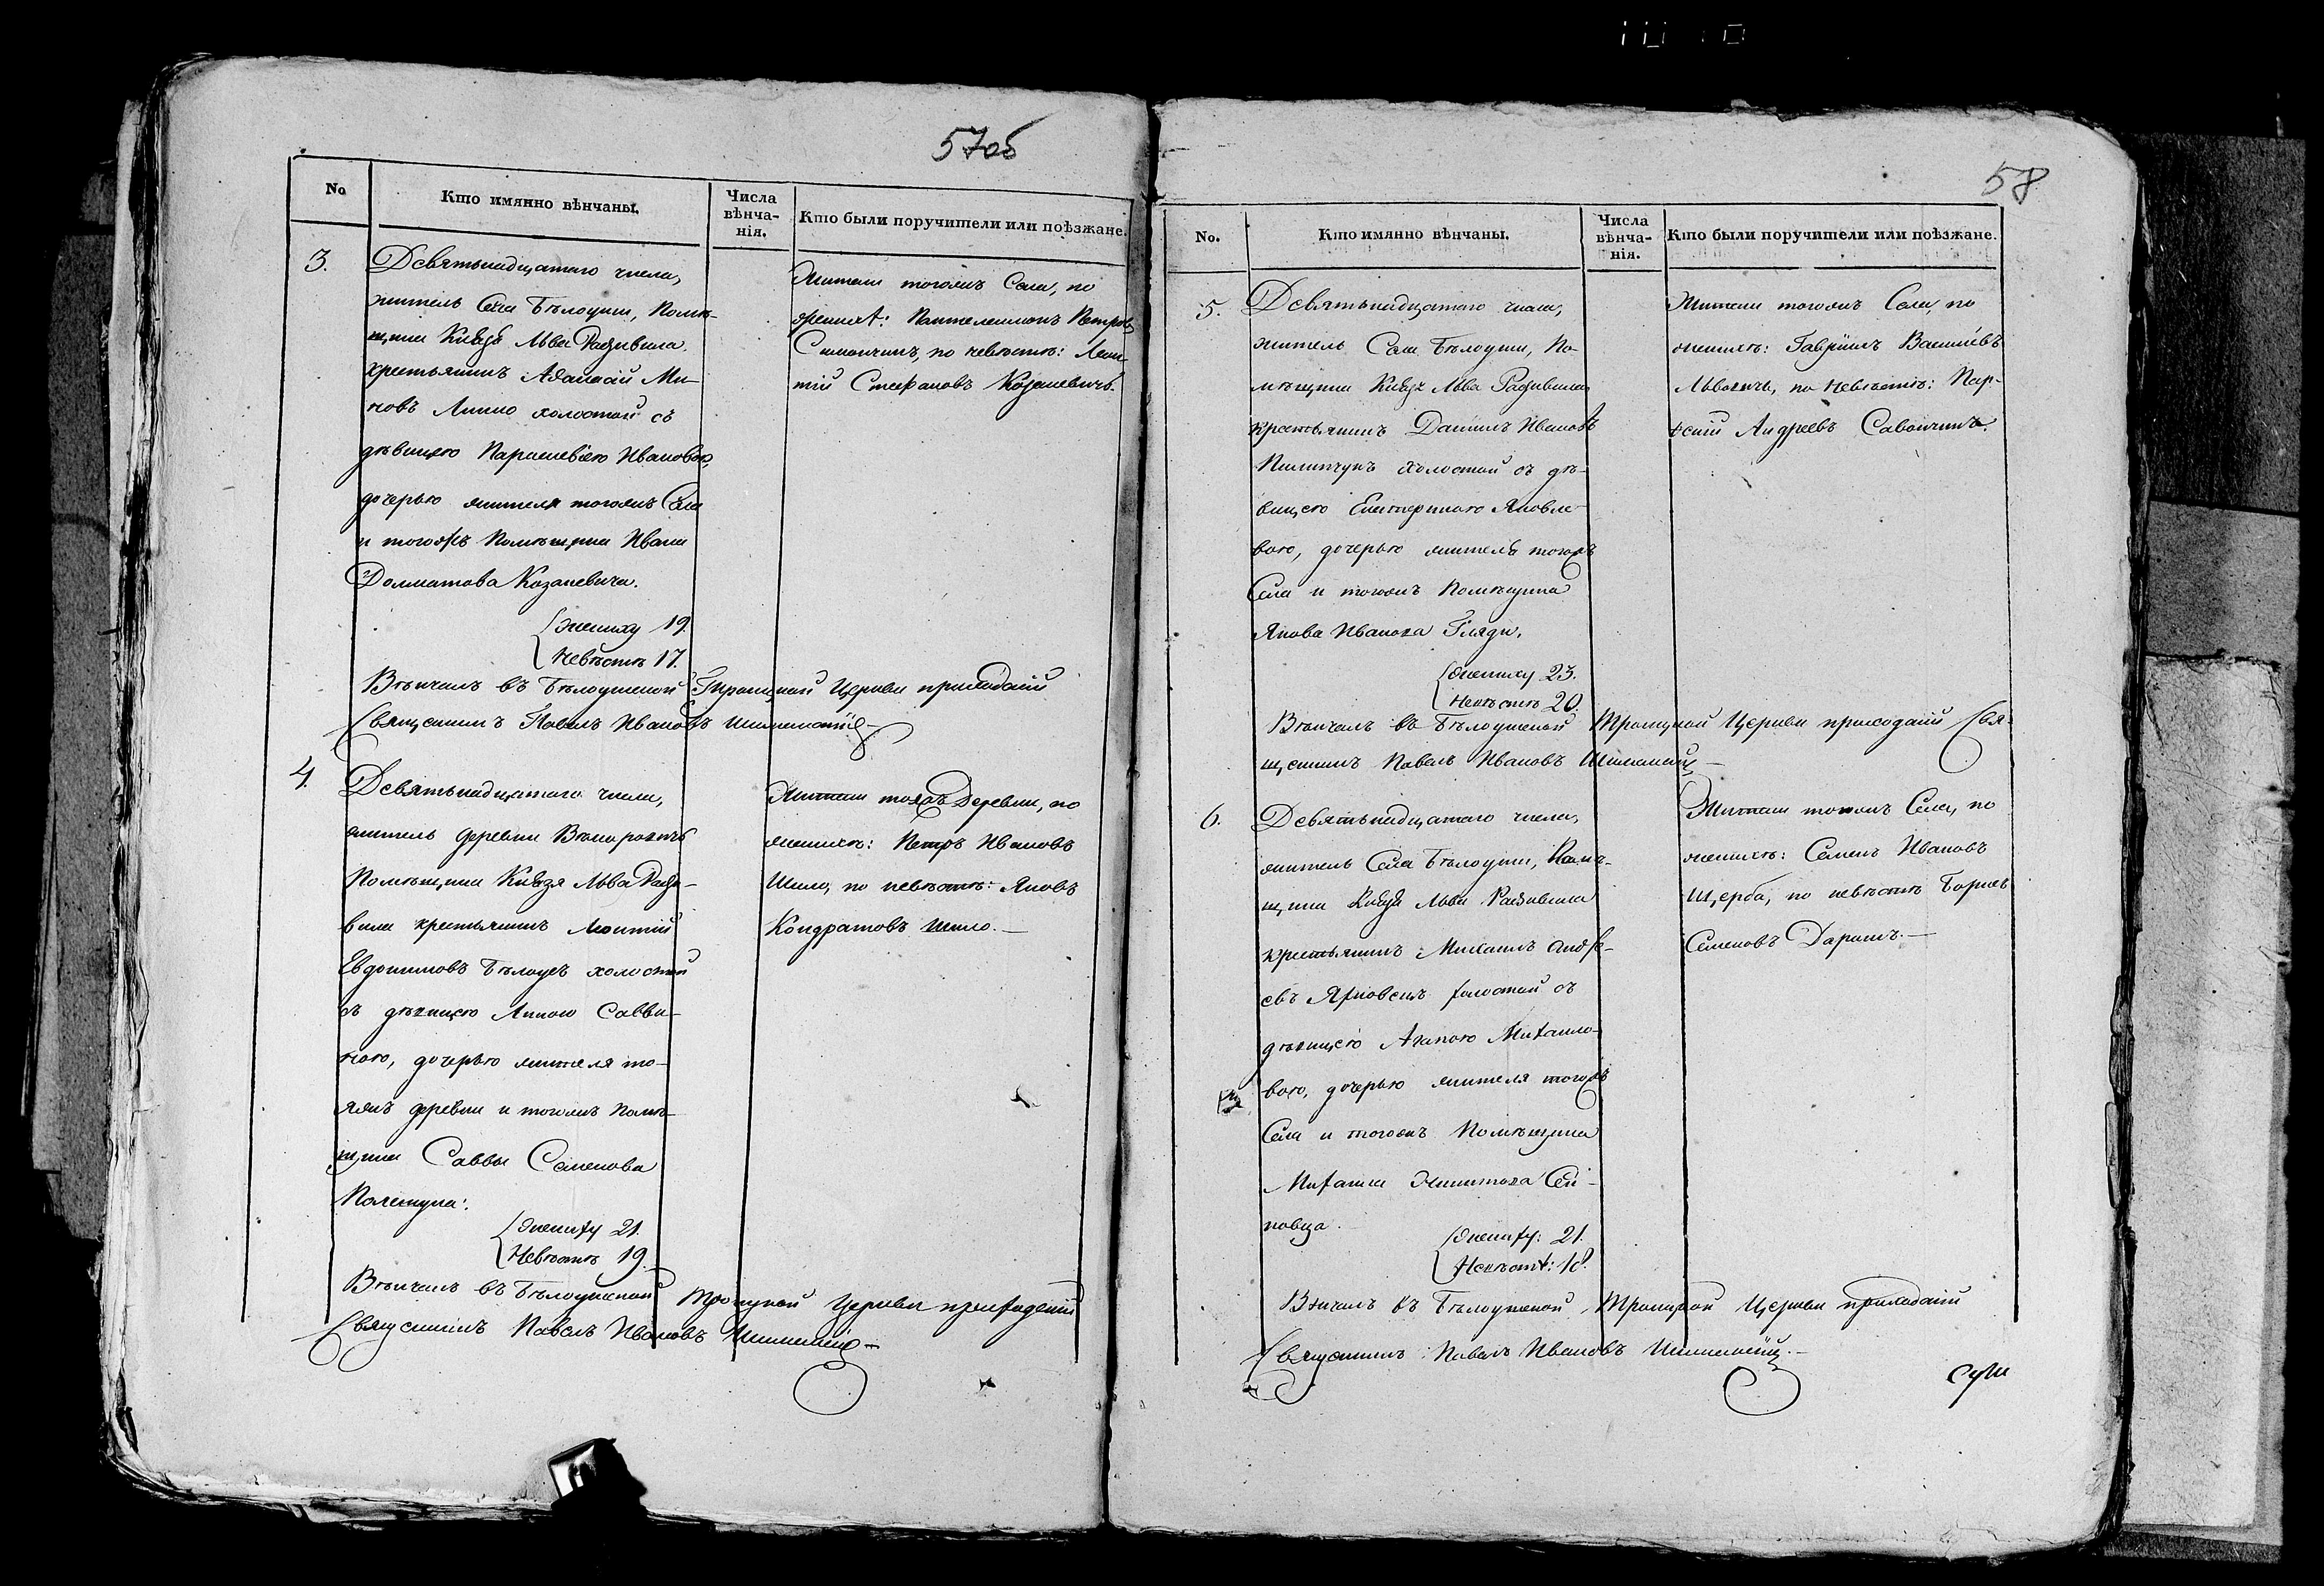 57об
No
Кто имянно вѣнчаны.
Числа
вѣнча-
нія.
Кто были поручители или поѣзжане.
3.
Девятьнадцатаго числа,
житель Села Бѣлоуши, Помѣ-
щика Князя Льва Радзивила
крестьянинъ Ми-
новъ холостой съ
дѣвицею Параскевіею Ивановою,
дочерью жителя тогожъ Села
и тогожъ Помѣщика Ивана
Долматова Козакевича.
Жениху 19.
Невѣстѣ 17.
Вѣнчалъ въ Бѣлоушской Троицкой Церкви приходскій
Священникъ Павелъ Ивановъ
Жители тогожъ Села, по
женихѣ: Пантелеимонъ Петровъ
по невѣстѣ: Леон-
тій Стефановъ Козакевичъ.
4.
Девятьнадцатаго числа,
житель деревни
Помѣщика Князя Льва Радзи-
вила крестьянинъ Леонтій
Евдокимовъ Бѣлоусъ холостой
съ дѣвицею Анною Савви-
ною, дочерью жителя то-
яжъ деревни и тогожъ Помѣ-
щика Саввы Семенова
Полетука.
Жениху 21.
Невѣстѣ 19.
Вѣнчалъ въ Бѣлоушской Троицкой Церкви приходскій
Священникъ Павелъ Ивановъ
Жители тояжъ Деревни, по
женихѣ: Петръ Ивановъ
Шило, по невѣстѣ: Яковъ
Кондратовъ Шило.
58
No.
Кто имянно вѣнчаны.
Числа
вѣнча-
нія.
Кто были поручители или поѣзжане.
5.
Девятьнадцатаго числа,
житель Села Бѣлоуши, По-
мѣщика Князя Льва Радзивила
крестьянинъ Даніилъ Ивановъ
Пилипчукъ холостой съ дѣ-
вицею Екатериною Яковле-
вою, дочерью жителя тогожъ
Села и тогожъ Помѣщика
Якова Иванова Гляди.
Жениху 23.
Невѣстѣ 20.
Вѣнчалъ въ Бѣлоушской Троицкой Церкви приходскій Свя-
щенникъ Павелъ Ивановъ
Жители тогожъ Села, по
женихѣ: Гавріилъ Васильевъ
Львовичъ, по невѣстѣ: Пар-
Андреевъ Савончикъ.
6.
Девятьнадцатаго числа,
житель Села Бѣлоуши, Помѣ-
щика Князя Льва Радзивила
крестьянинъ Михаилъ Андре-
евъ холостой съ
дѣвицею Агапою Михайло-
вою, дочерью жителя тогожъ
Села и тогожъ Помѣщика
Михаила Никитова
Жениху: 21.
Невѣстѣ: 18.
Вѣнчалъ въ Бѣлоушской Троицкой Церкви приходскій
Священникъ Павелъ Ивановъ
Жители тогожъ Села, по
женихѣ: Семенъ Ивановъ
Щерба, по невѣстѣ Борисъ
Семеновъ